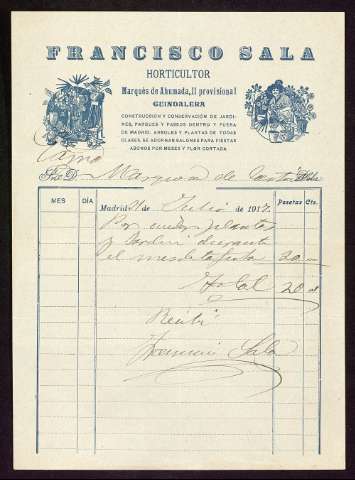 FRANCISCO SALA
HORTICULTOR
Marqués de Ahumada, 11 provisional
GUINDALERA
CONSTRUCCION Y CONSERVACIÓN DE JARDI-
NES, PARQUES Y PASEOS DENTRO Y FUERA
DE MADRID. ARBOLES Y PLANTAS DE TODAS
CLASES. SE ADORNAN SALONES PARA FIESTAS
ABONOS POR MESES Y FLOR CORTADA
Sr. D. Marques de
MES DÍA Madrid de Julio de 1917. Pesetas Cts.
Por plantas
y jardin durante
el mes de la fecha 20
Total 20
Recibi
Francisco Sala